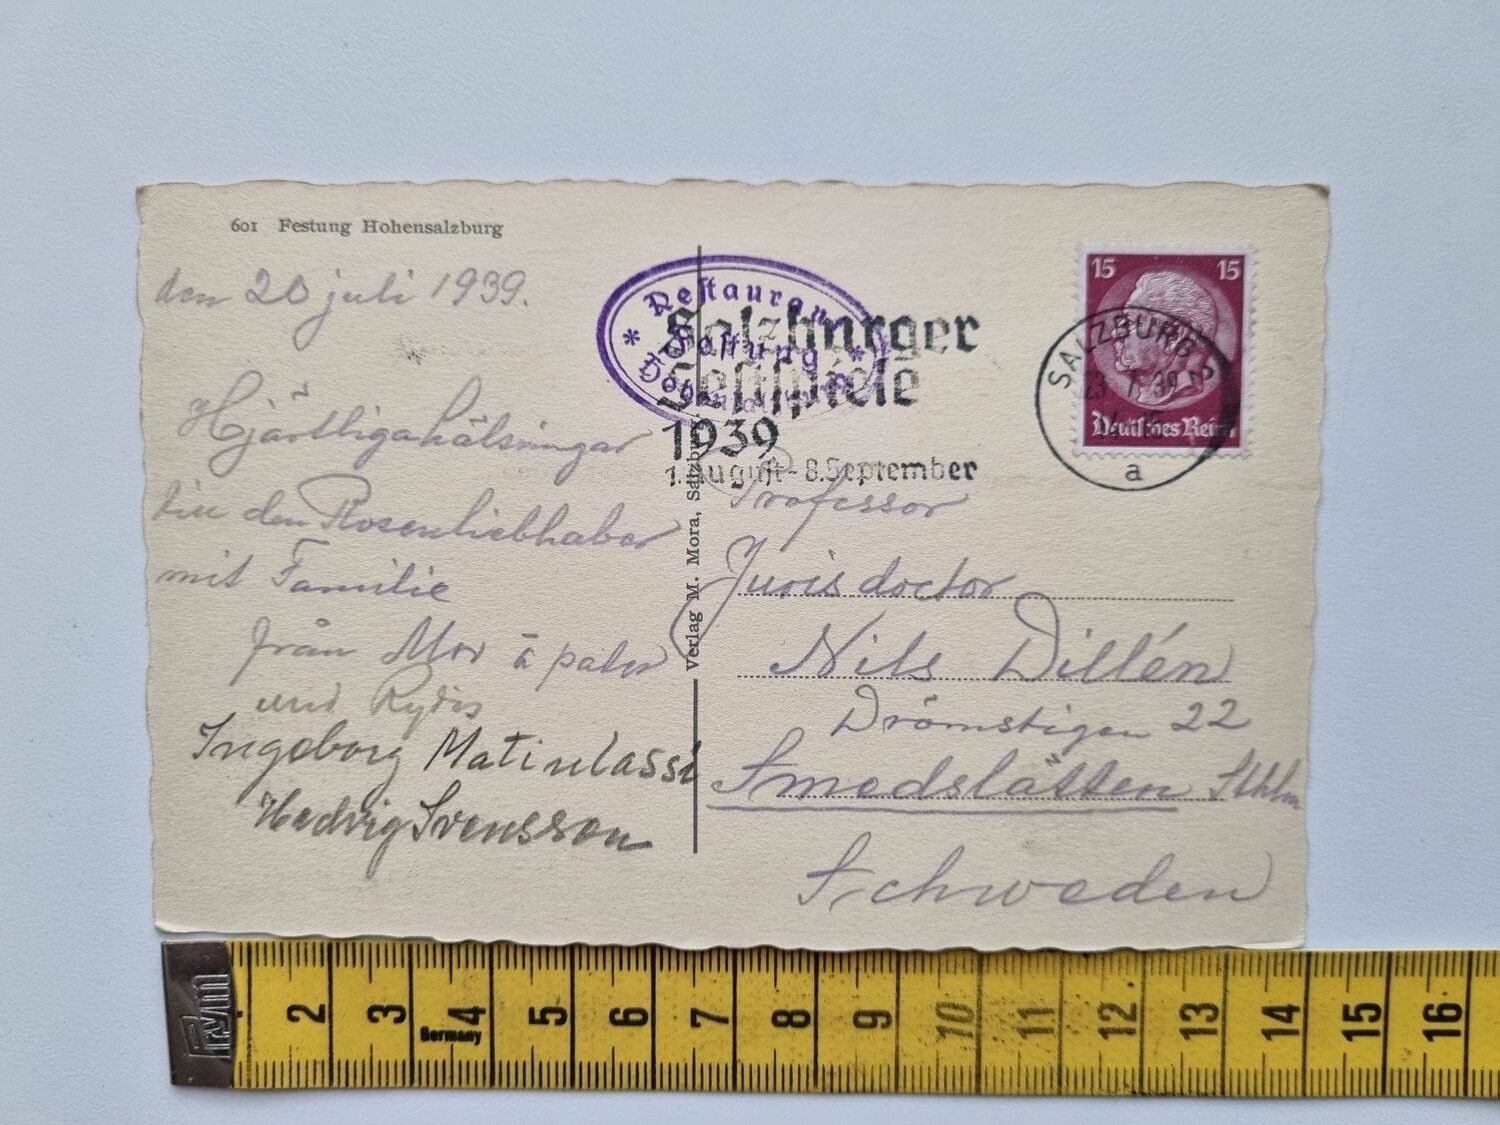 601 Festung Hohensalzburg
den 20 juli 1939.
Hjärtliga hälsningar
till den Rosenliebhaber
mit Familie
från Mor &
und
Ingeborg Matinlassi
Hedvig Svensson
Verlag M. Mora, Salzburg
Restaurant
Festung
Hohensalzburg
Salzburger
Festspiele
1939
1. August - 8. September
15 15
Deutsches Reich
SALZBURG 2
23 7. 39
a
Professor
Juris doctor
Nils Dillén
Drömstigen 22
Smedslätten Sthlm
Schweden
Prym
Germany
2 3 4 5 6 7 8 9 10 11 12 13 14 15 16